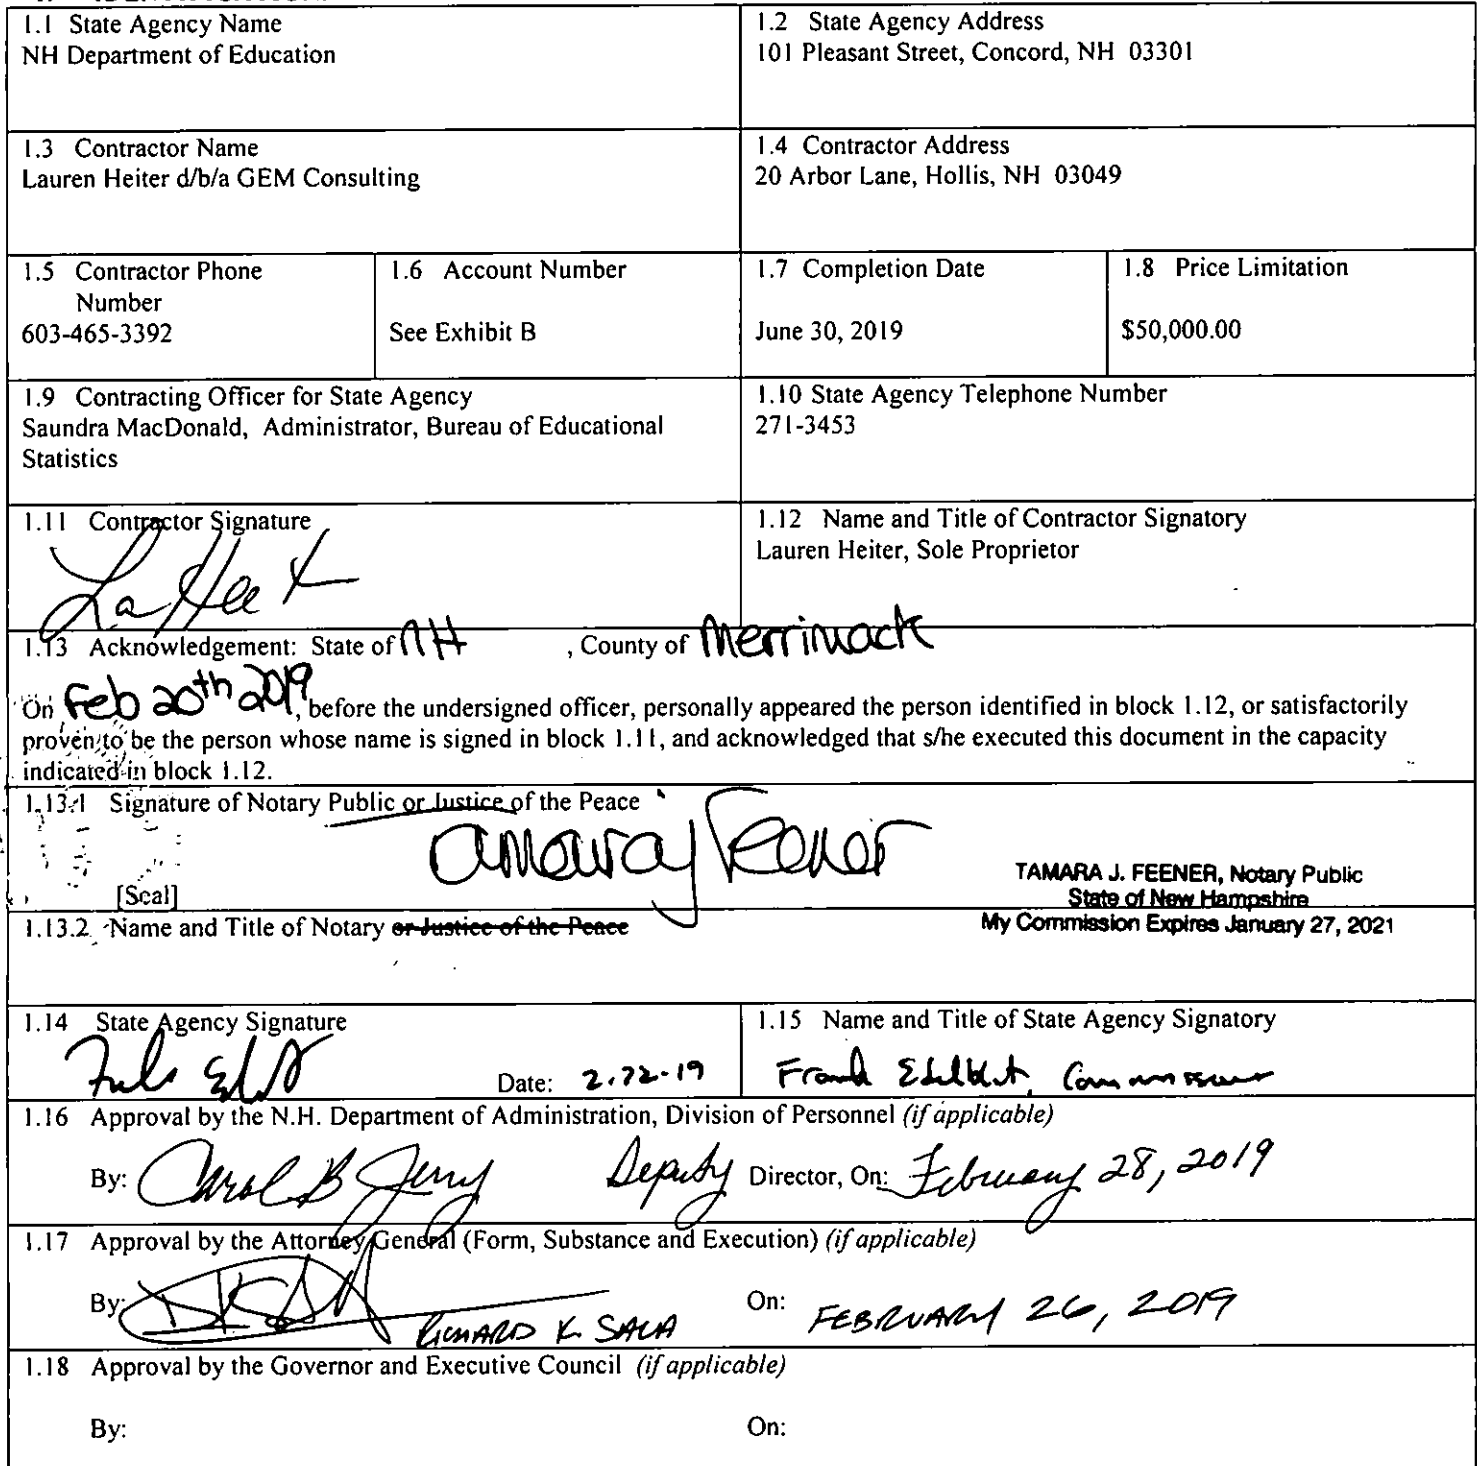 1.1 State Agency Name
NH Department of Education
1.2 State Agency Address
101 Pleasant Street, Concord, NH 03301
1.3 Contractor Name
Lauren Heiter d/b/a GEM Consulting
1.4 Contractor Address
20 Arbor Lane, Hollis, NH 03049
1.5 Contractor Phone
Number
603-465-3392
1.6 Account Number
See Exhibit B
1.7 Completion Date
June 30, 2019
1.8 Price Limitation
$50,000.00
1.9 Contracting Officer for State Agency
Saundra MacDonald, Administrator, Bureau of Educational
Statistics
1.10 State Agency Telephone Number
271-3453
1.11 Contractor Signature
1.12 Name and Title of Contractor Signatory
Lauren Heiter, Sole Proprietor
1.13 Acknowledgement: State of NH , County of Merrimack
On Feb 20th 2019, before the undersigned officer, personally appeared the person identified in block 1.12, or satisfactorily
proven to be the person whose name is signed in block 1.11, and acknowledged that s/he executed this document in the capacity
indicated in block 1.12.
1.13.1 Signature of Notary Public or Justice of the Peace
[Seal]
TAMARA J. FEENER, Notary Public
State of New Hampshire
My Commission Expires January 27, 2021
1.13.2 Name and Title of Notary or Justice of the Peace
1.14 State Agency Signature
Date: 2.22-19
1.15 Name and Title of State Agency Signatory
Frank Edelblut, Commissioner
1.16 Approval by the N.H. Department of Administration, Division of Personnel (if applicable)
By: Carol B Jerry Deputy Director, On: February 28, 2019
1.17 Approval by the Attorney General (Form, Substance and Execution) (if applicable)
By: RICHARD K. SALA On: FEBRUARY 26, 2019
1.18 Approval by the Governor and Executive Council (if applicable)
By: On: